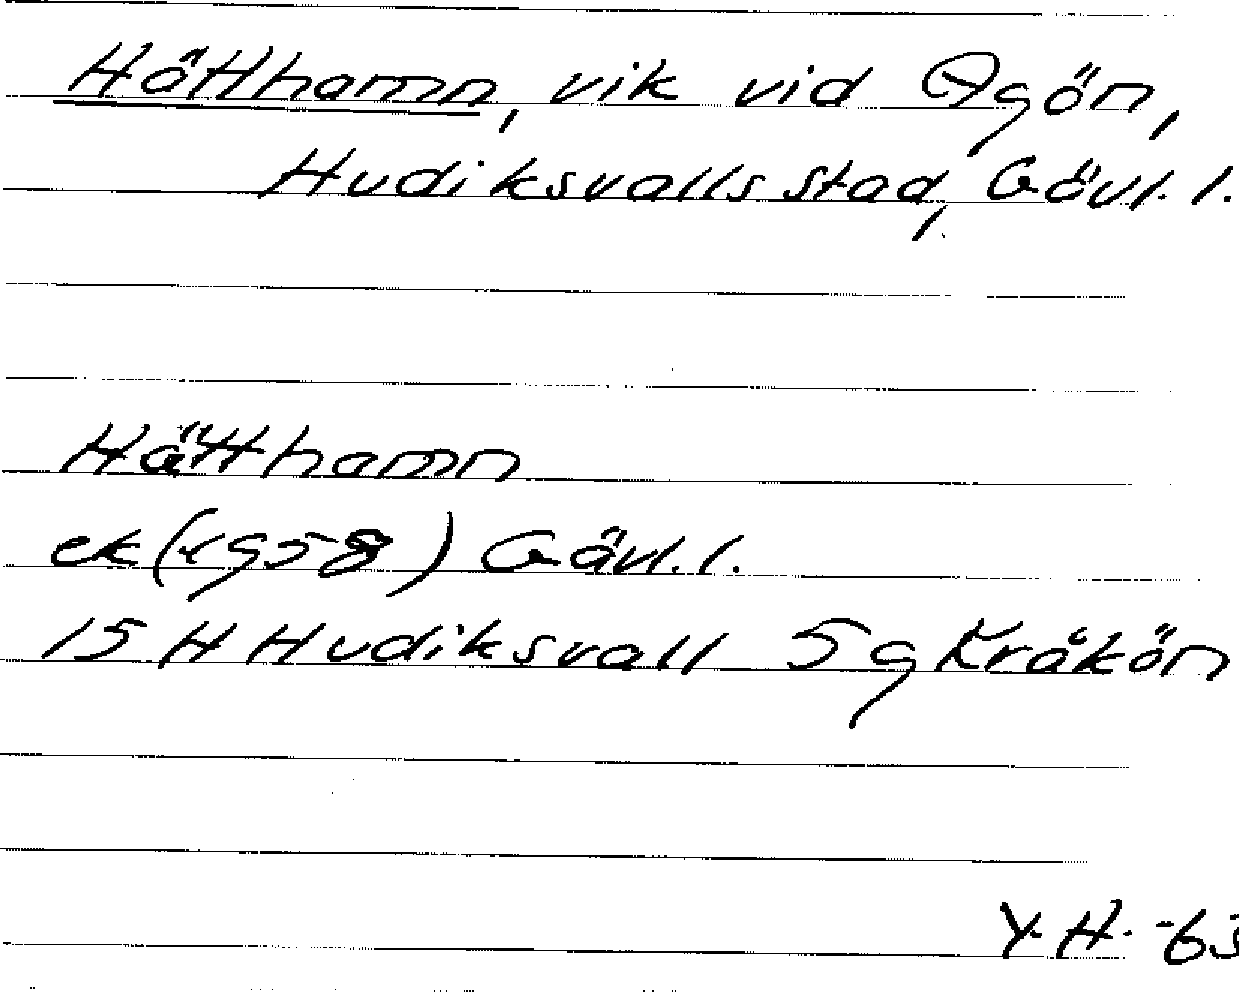 Hätthamn, vik vid Agön,
Hudiksvalls stad, Gävl. l.
Hätthamn
ek (1958) Gävl. l.
15 H Hudiksvall 5 g Kråkön
Y. H. -63